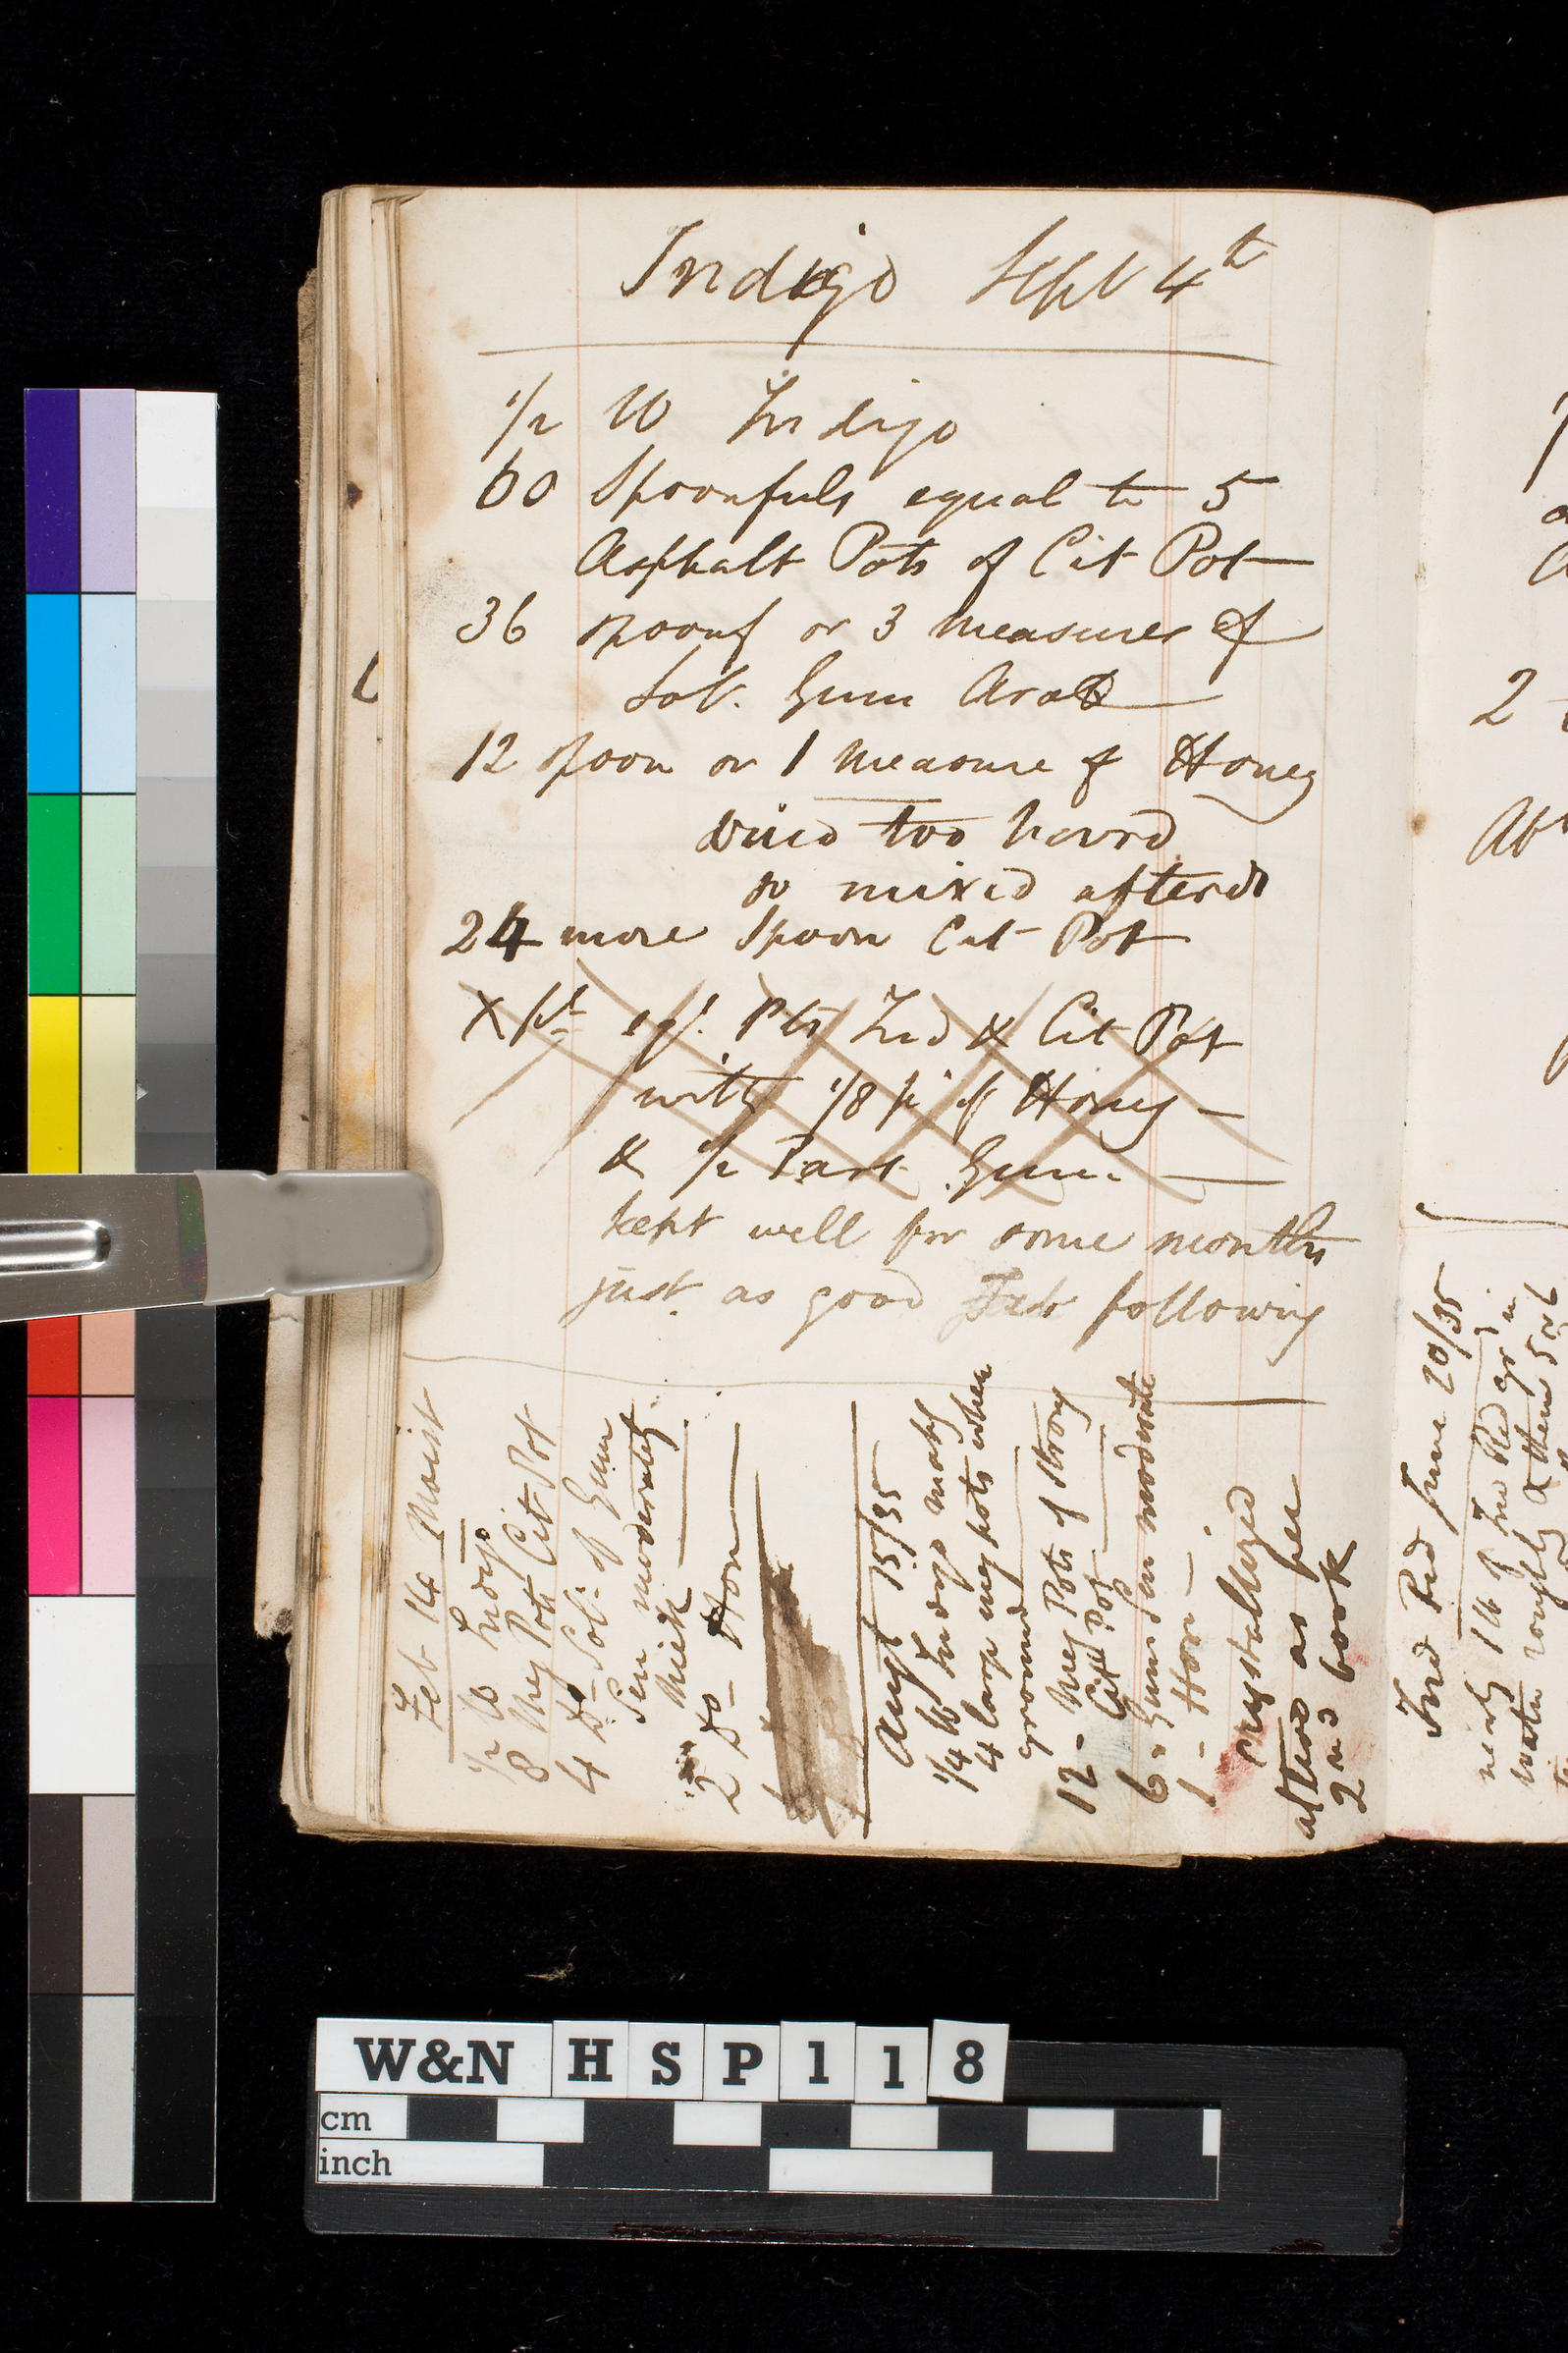 Indigo Sept 4th
1/2 lb Indigo
60 Spoonfuls equal to 5
Asphalt Pots of Cit Pot
36 spoonf or 3 measures of
Sol. Gum Arab
12 spoon or 1 measure of Honey
dried too hard
so mixed afterds
24 more Spoon Cit Pot
X pt eql. Pts Ind & Cit Pot
with 1/8 pt of Honey
& 1/2 Part Gum
kept well for some months
just as good Feb following
Feb 14 Moist
1/2 lb Indigo
8 Meg Pots Cit Pot
4 Do Sol. of Gum
Sen moderately
thick
2 Do Hon
Augt 15/35
1/4 lb Indigo mostly
4 large meg pots when
ground
12 - Meg Pots of strong
Cit Pot
6 - Gum Sen moderate
1 - Hon -
crystallized
afterds as per
2nd book
2
Ind Red June 20/35
nearly 1 lb of Ind Red gr in
water roughly & then
W&N HSP118
cm
inch